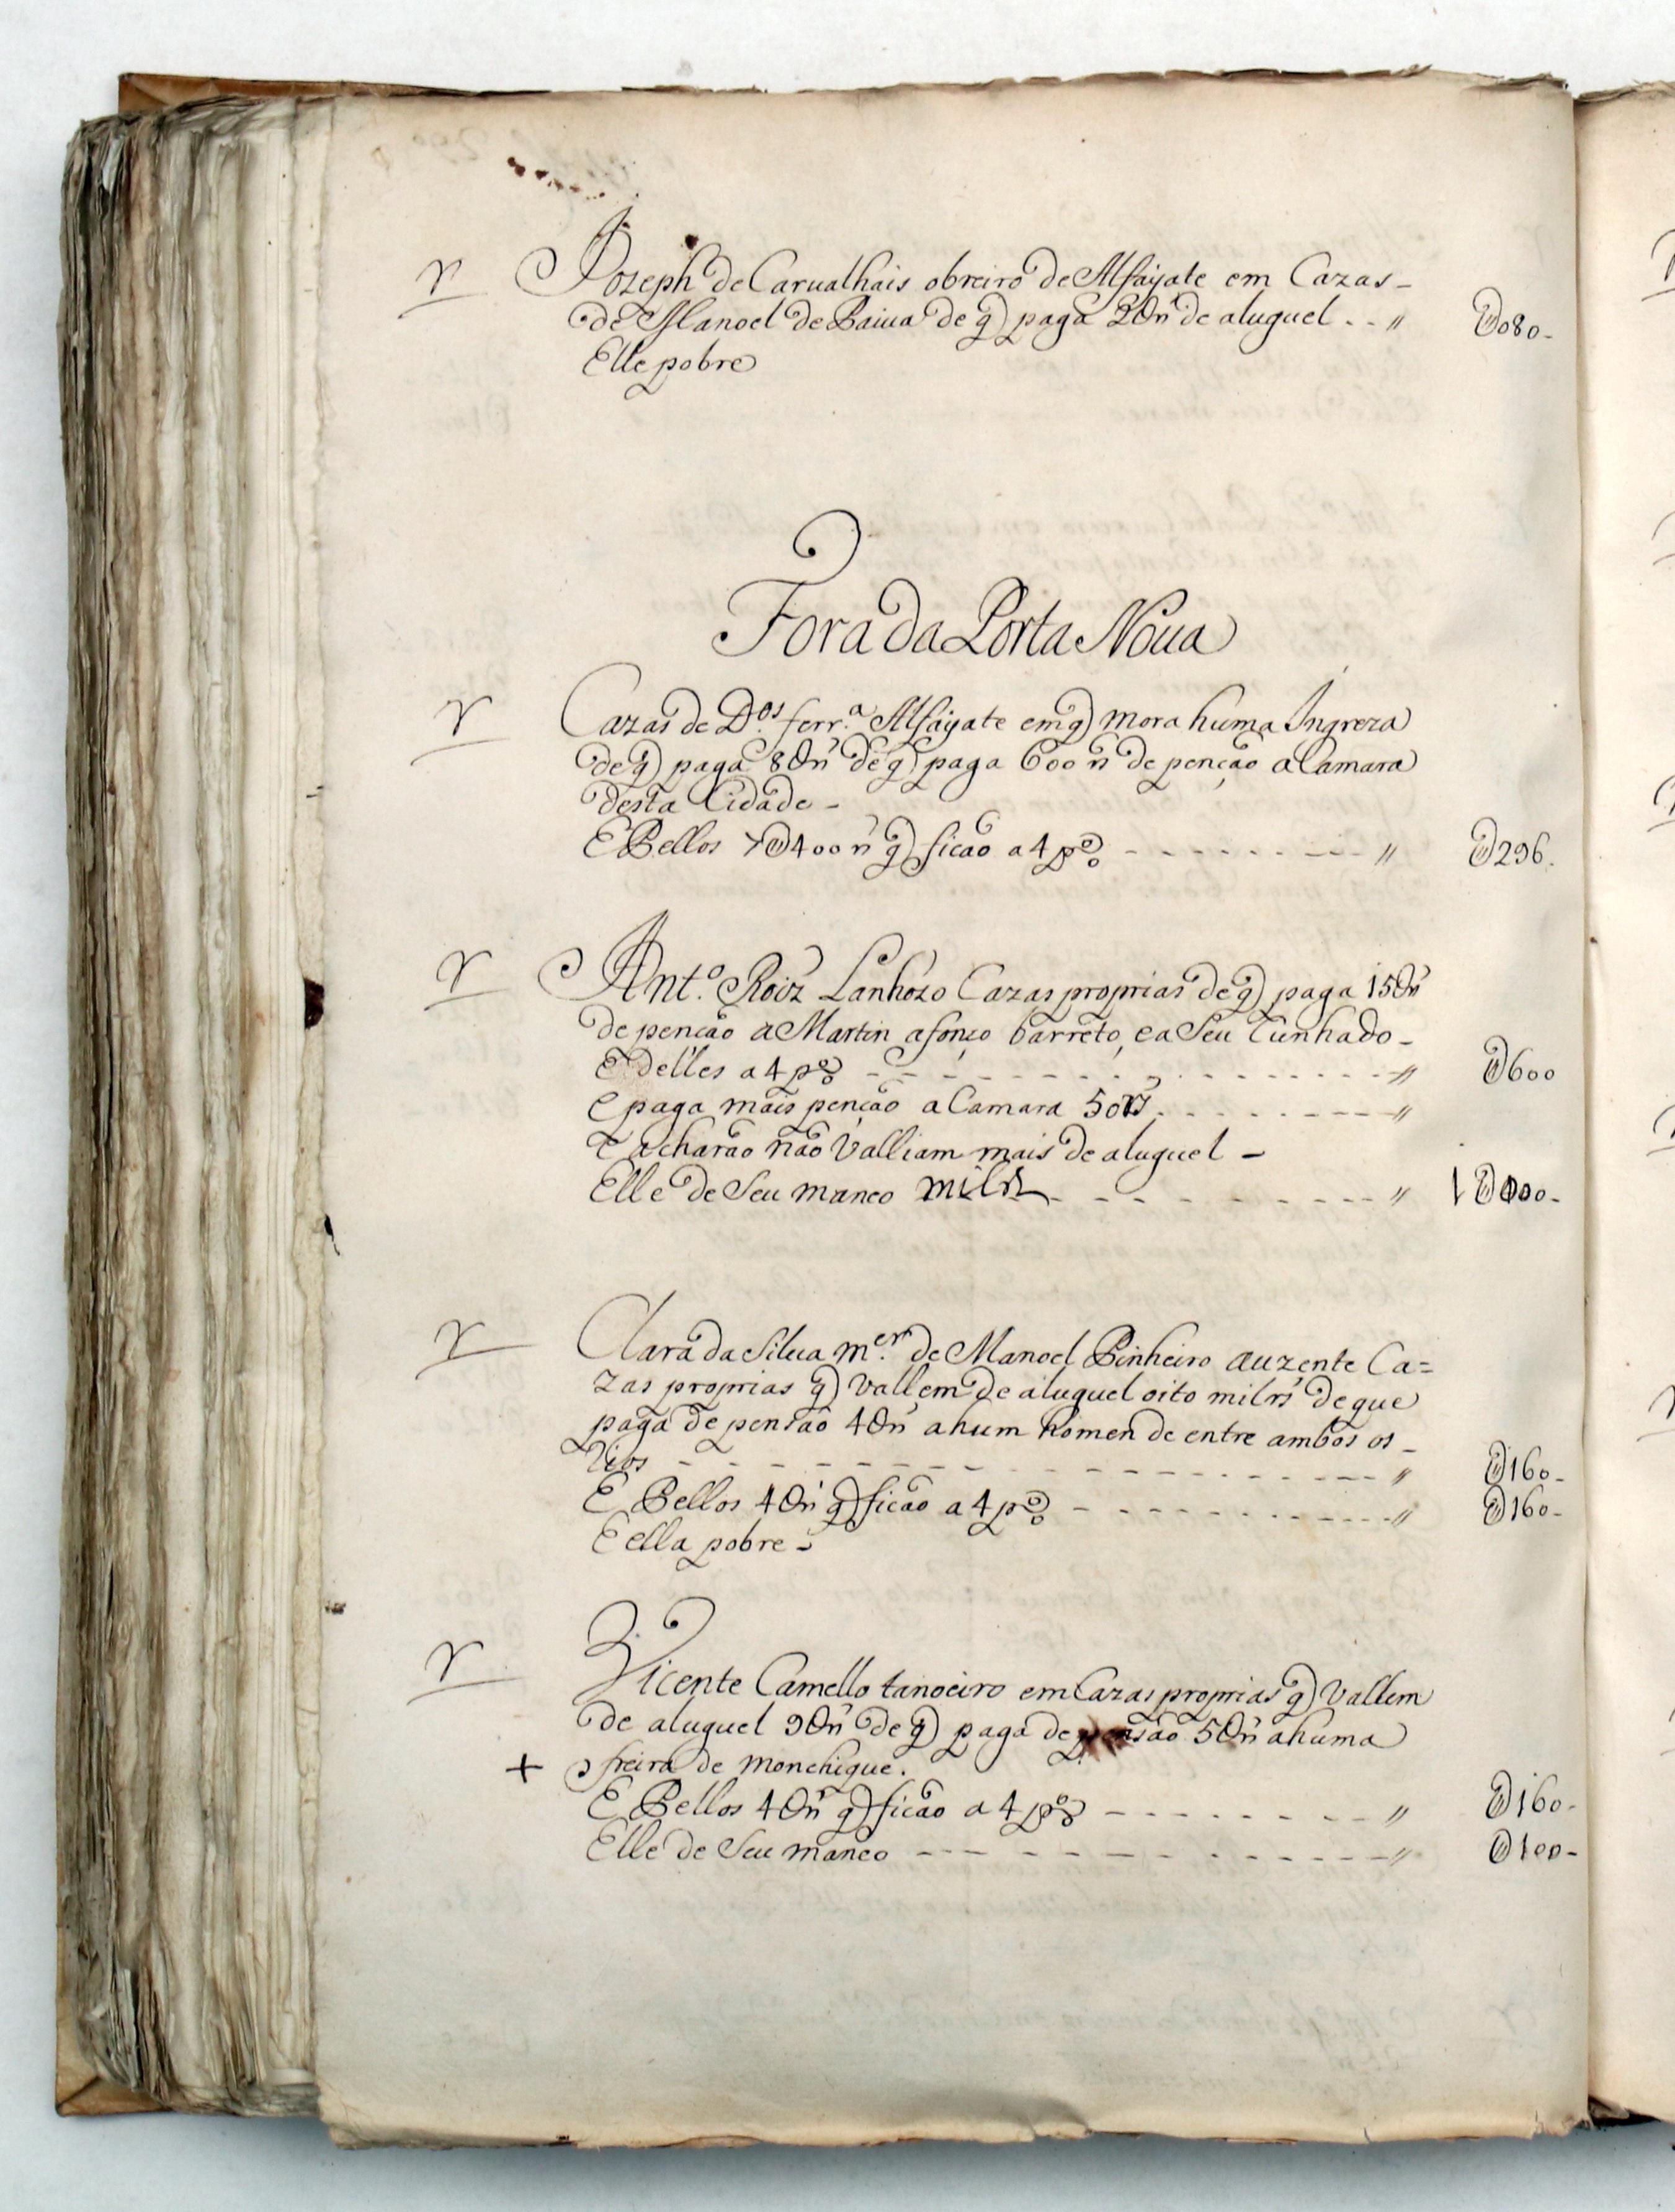 Jozeph de Carualhais obreiro de Alfayate em Cazas -
de Manoel de Paiua de q̃ paga 2U rˢ de aluguel . . " U080 -
Elle pobre
Fora da Porta Noua
Cazas de D.ᵒˢ ferr.ᵃ Alfayate em q̃ mora huma Ingreza
de q̃ paga 8U rˢ de q̃ paga 600 rˢ de penção a Camara
desta Cidade -
E Pellos 7U400 rˢ q̃ ficão a 4 p.ᵒ - - - - - - - " U296.
Ant.º Roiz Lanhozo Cazas proprias de q̃ paga 15U rˢ
de penção a Martin afonço barreto, e a Seu Cunhado -
E Delles a 4 p.ᵒ - - - - - - - - - - " U600
E paga mais penção a Camara 50 rˢ. - - - - - - "
E acharão não Valliam mais de aluguel -
Elle de Seu maneo mil rˢ - - - - - - - " 1U000 -
Clara da Silua m.ᵉʳ de Manoel Pinheiro auzente Ca=
zas proprias q̃ vallem de aluguel oito mil rˢ de que
paga de pensão 4U rˢ a hum homen de entre ambos os -
Rios - - - - - - - - - - - - " U160 -
E Pellos 4U rˢ q̃ ficão a 4 p.ᵒ - - - - - - - " U160 -
E ella pobre -
Vicente Camello tanoeiro em Cazas proprias q̃ Vallem
de aluguel 9U rˢ de q̃ paga de pensão 5U rˢ a huma
+ freira de Monchique.
E Pellos 4U rˢ q̃ ficão a 4 p.ᵒ - - - - - - - " U160 -
Elle de Seu maneo - - - - - - - - - " U100 -